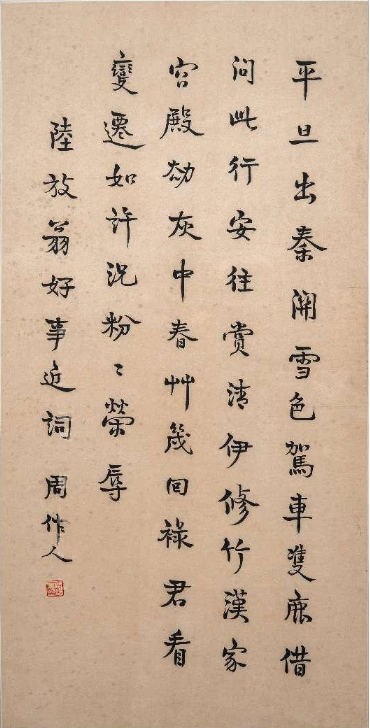 平旦出秦關雪色駕車雙鹿借
問此行安往賞清伊修竹漢家
宮殿劫灰中春艸幾回綠君看
變遷如許況紛々榮辱
陸放翁好事近詞 周作人